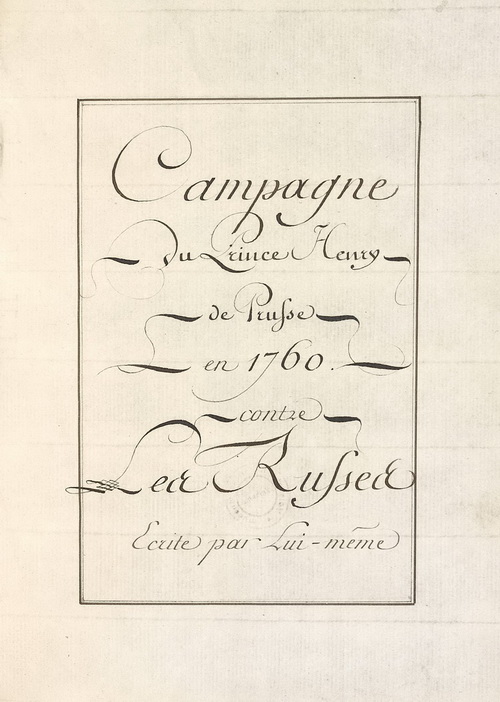 Campagne
Du Prince Henry
de Prusse
en 1760.
contre
Les Russes
Ecrite par Lui-même